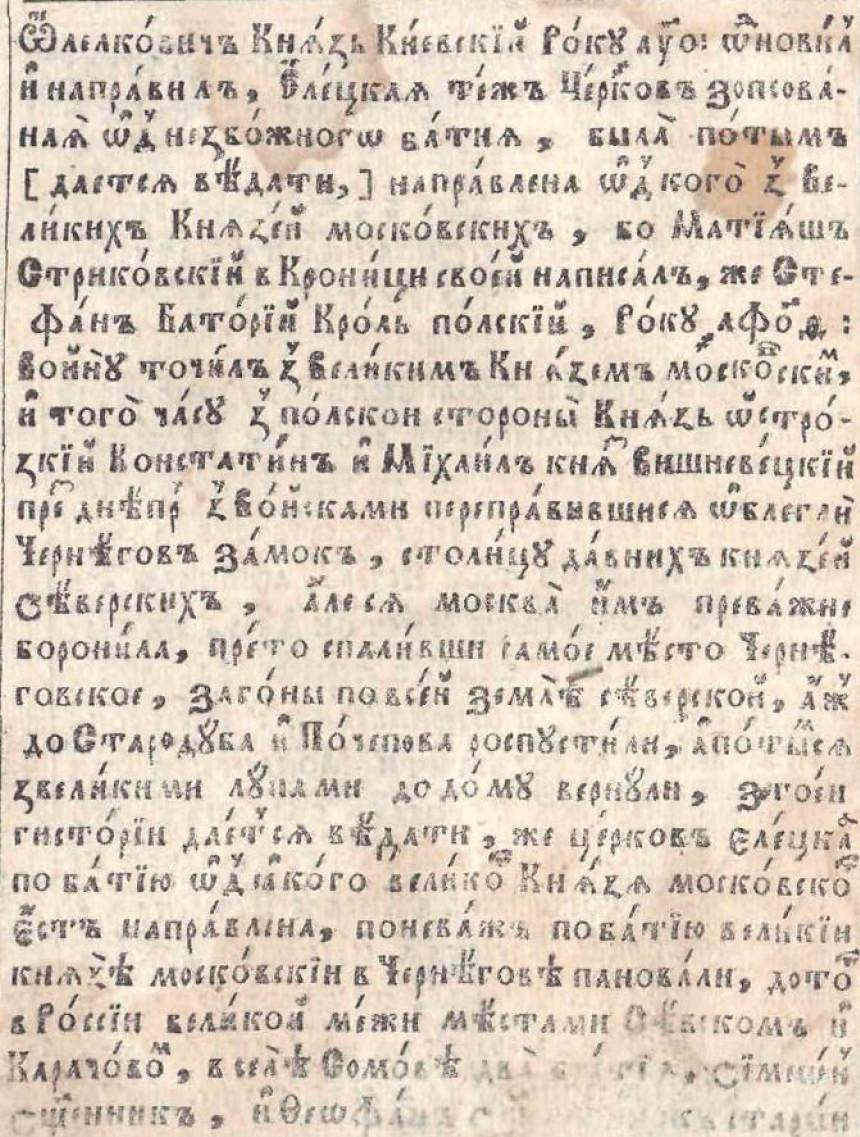 Ѿлелко́вичъ Кнѧ́зь Ки́евскїй Ро́кꙋ ҂аүо: ѿновⷧ҇и
и҆ напра́вилъ, Е҆ле́цкаѧ те́жъ Че́рковъ зопсова́-
наѧ̀ ѿ незбо́жногѡ ба́тиѧ, была̀ по́тымъ
[дается вѣ́дати,] напра́влена ѿ кого̀ з̾ Ве-
ли́кихъ Кнѧзе́й моско́вскихъ, бо Матїѧ́шъ
Стрико́вскїй в Крони́ци свое́й написа́лъ, же Сте-
фа́нъ Бато́рїй Кро́ль по́лскїй, Ро́кꙋ ҂афо҃а:
войнꙋ̀ точи́лъ з̾ вели́кимъ Кнѧ́земъ моско́вскиⷨ,
и҆ того̀ ча́сꙋ з̾ по́лской стороны̀ Кнѧ́зь ѡ҆стро́-
зкїй Констати́нъ и҆ Мїхаи́лъ кнѧⷥ Вишневе́цкїй
преⷥ днѣ́прⷬ з̾ во́йсками перепра́вывшисѧ ѡ҆блеглѝ
Чернѣ́говъ за́мокъ, столи́цꙋ да́внихъ кнѧзе́й
сѣ́верскихъ, а҆ле сѧ москва̀ и҆мъ прева́жне
борони́ла, пре́то спали́вши само́е мѣ́сто Чернѣ́-
говское, заго́ны по все́й землѣ̀ сѣ́верской, а҆ж̾
до Староду́ба и҆ По́чепова роспꙋсти́ли, а҆ по́тыⷨсѧ
з вели́кими лꙋ́пами до до́мꙋ вернꙋ́ли, з тое́и
гисто́рїи дае́т̾сѧ вѣ́дати, же це́рковъ Еле́цкаѧ
по ба́тїю ѿ ꙗ҆ко́го вели́коⷢ Кнѧ́зѧ моско́вскоⷢ
е҆стъ напра́влена, понева́жъ по ба́тїю вели́кїи
кнѧзѣ̀ моско́вскїи в Чернѣ́говѣ панова́ли, до тоⷢ
в Ро́ссїи вели́кой ме́жи мѣ́стами Сѣ́вскомъ и҆
Карачо́воⷨ, в селѣ̀ Сомо́вѣ два̀ Сїмео́н
сщ҃е́нникъ, и҆ Ѳеѡфа́нъ ста́рїи